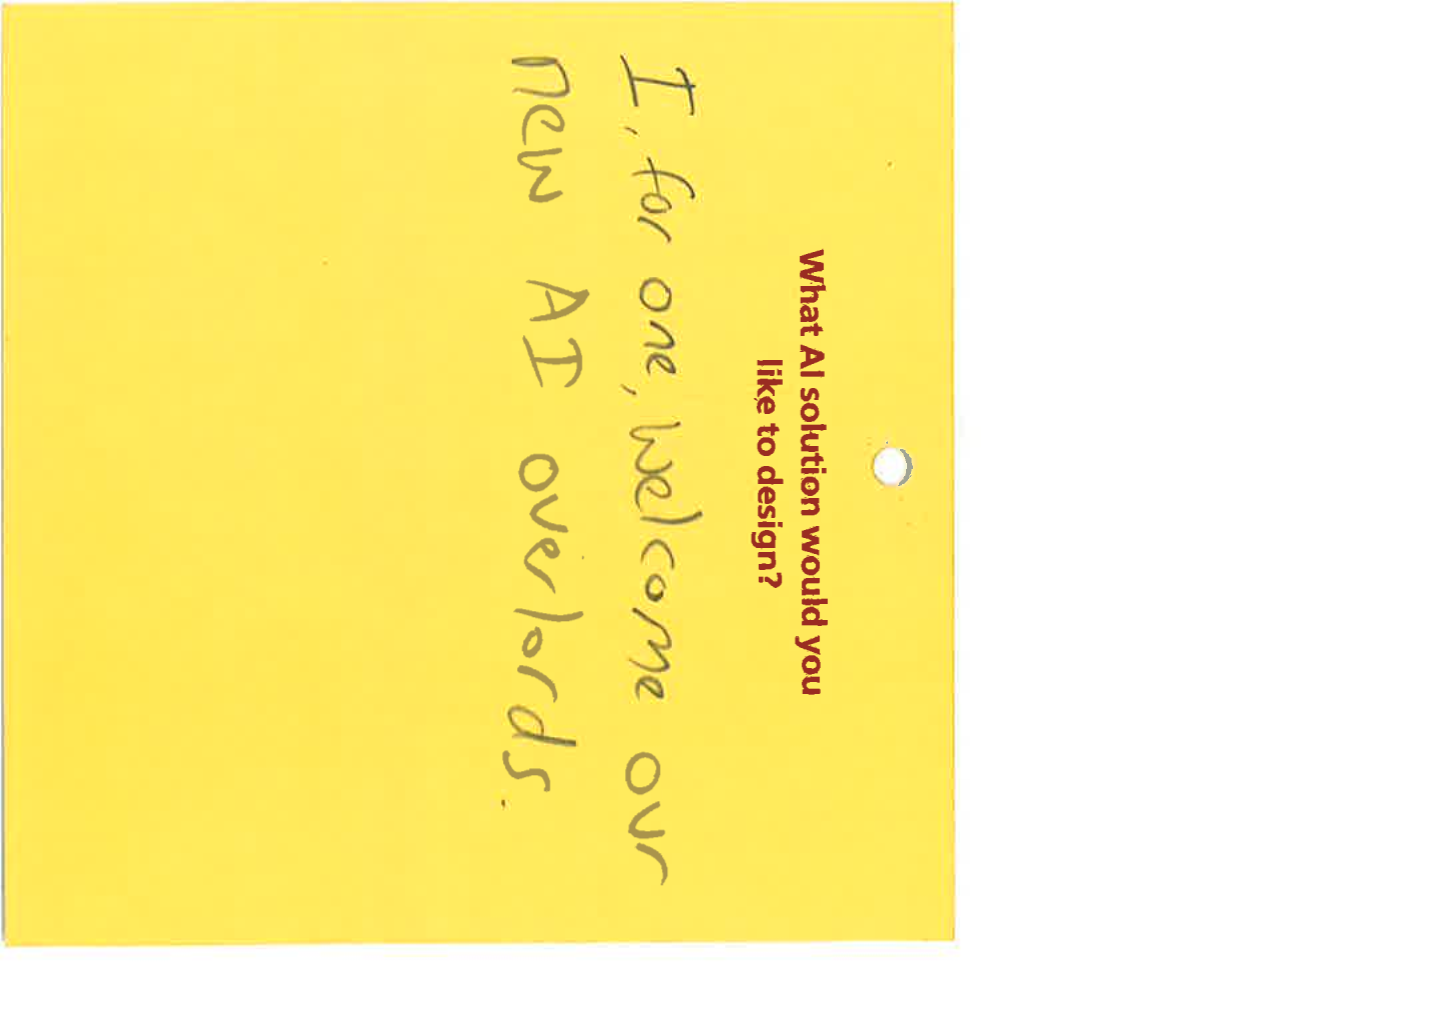 What AI solution would you
like to design?
I, for one, welcome our
new AI overlords.